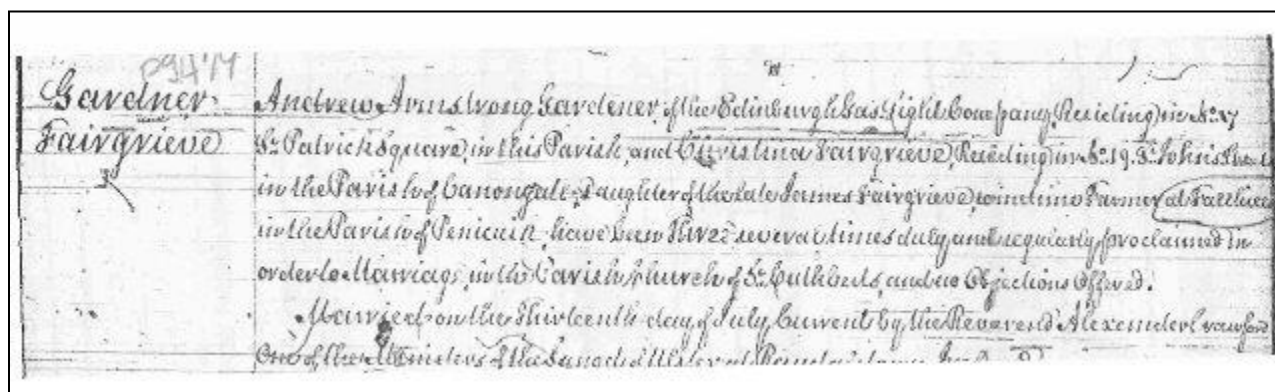 Gardner
Fairgrieve
Andrew Armstrong Gardener of the Edinburgh Gas Light Company, Residing in No. 17
St. Patrick Square, in this Parish, and Christina Fairgrieve, Residing in No. 19. St. John's Street
in the Parish of Canongate, Daughter of the late James Fairgrieve, sometime Farmer at
in the Parish of Penicuik, have been three several times duly and regularly proclaimed in
order to Marriage, in the Parish Church of St. Cuthberts, and no Objections Offered.
Married on the Thirteenth day of July Current by the Reverend Alexander Crawford
One of the Ministers of the